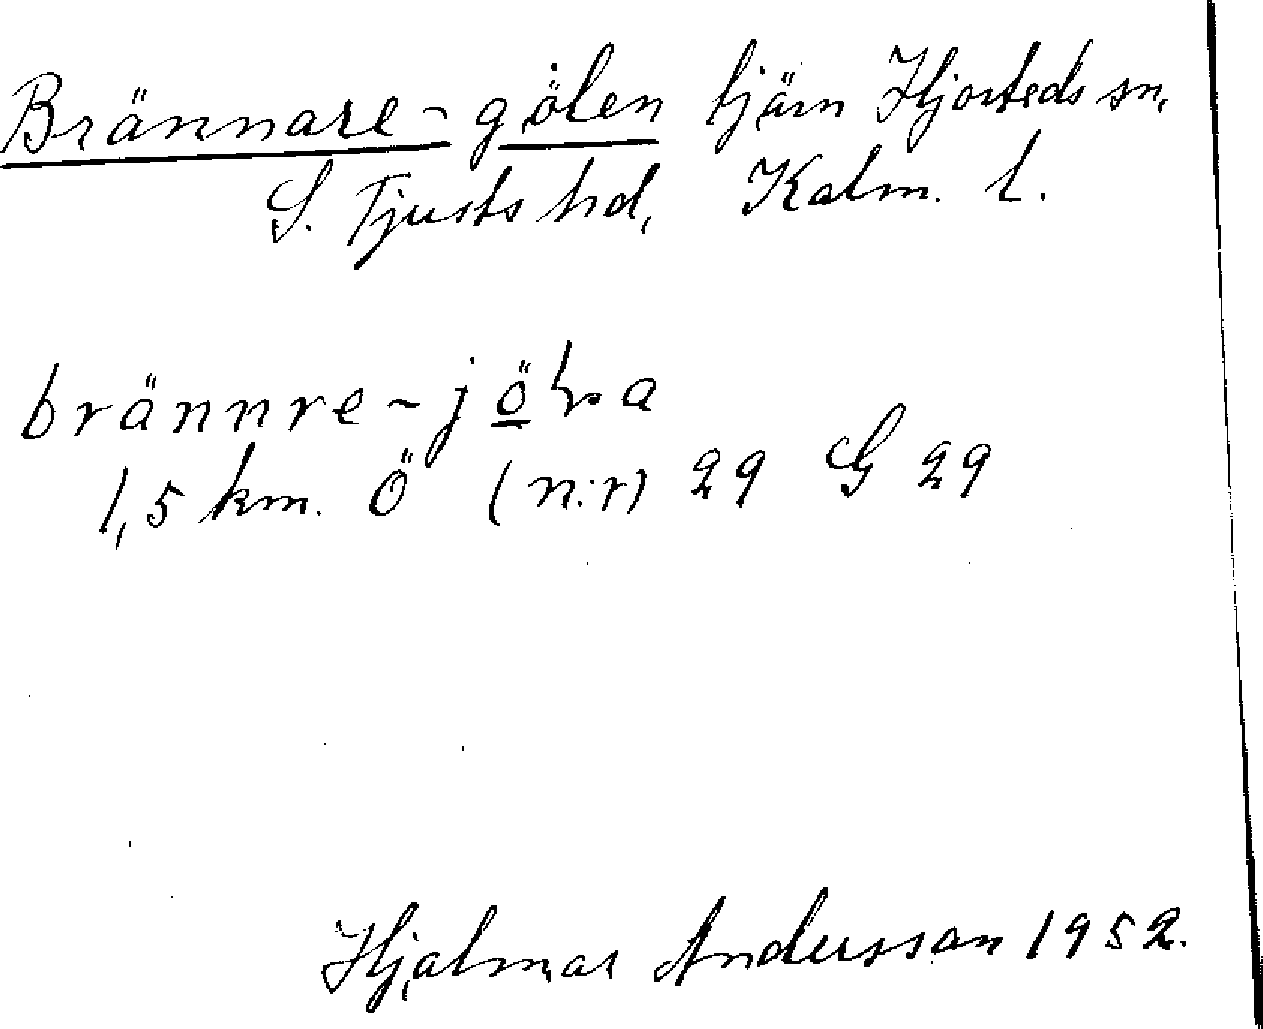 Brännare-gölen tjärn Hjorteds sn,
S. Tjusts hd, Kalm. l.
brännre-jöɫa
1,5 km. Ö (n:r) 29 G 29
Hjalmar Andersson 1952.